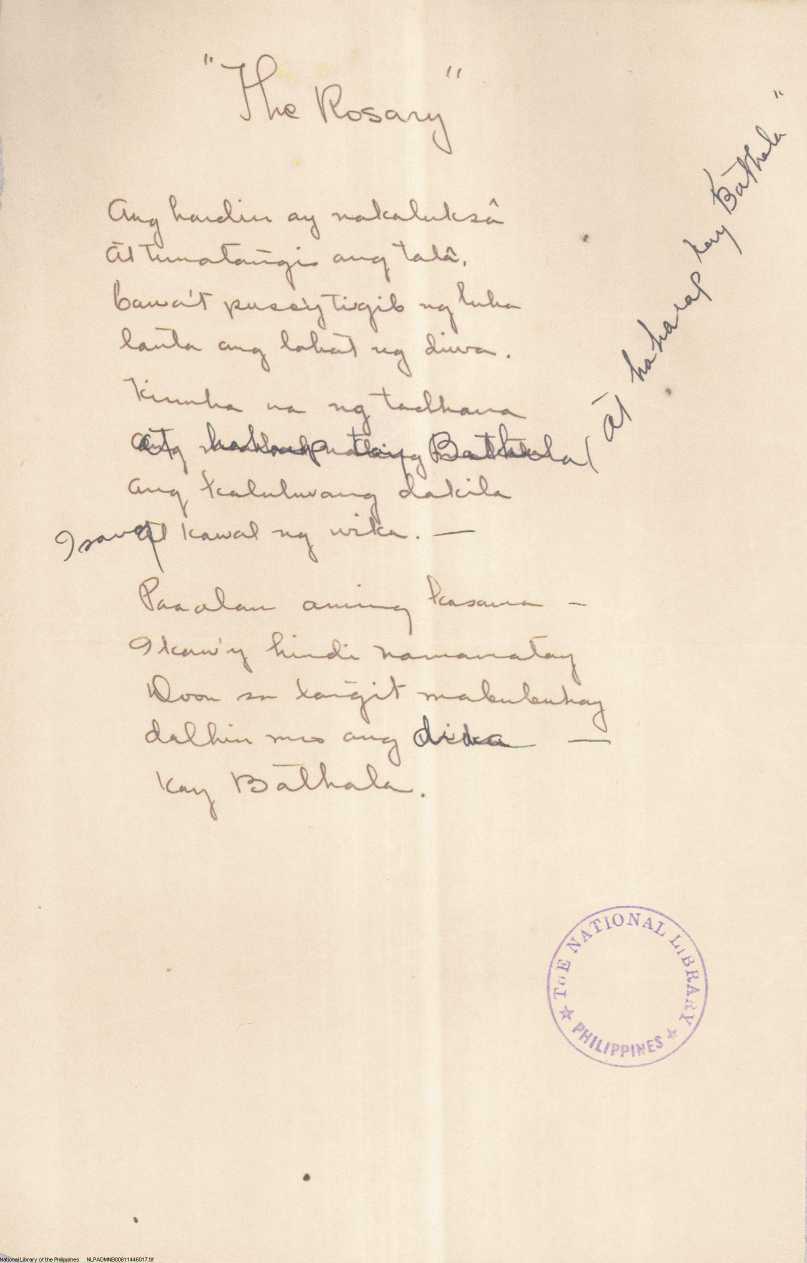 "The Rosary"
Ang hardin ay nakaluksâ
At tumatangis ang talâ.
bawa't puso'y tigib ng luha
lanta ang lahat ng diwa.
Kinuha na ng tadhana
Bathala
At haharap kay Bathala"
ang kaluluwang dakila
Isang kawal ng wika. —
Paalam aming kasama —
Ikaw'y hindi namamatay
Doon sa langit mabubuhay
dalhin mo ang diwa —
kay Bathala.
THE NATIONAL LIBRARY
PHILIPPINES
National Library of the Philippines NLPADMNB00611446017.tif